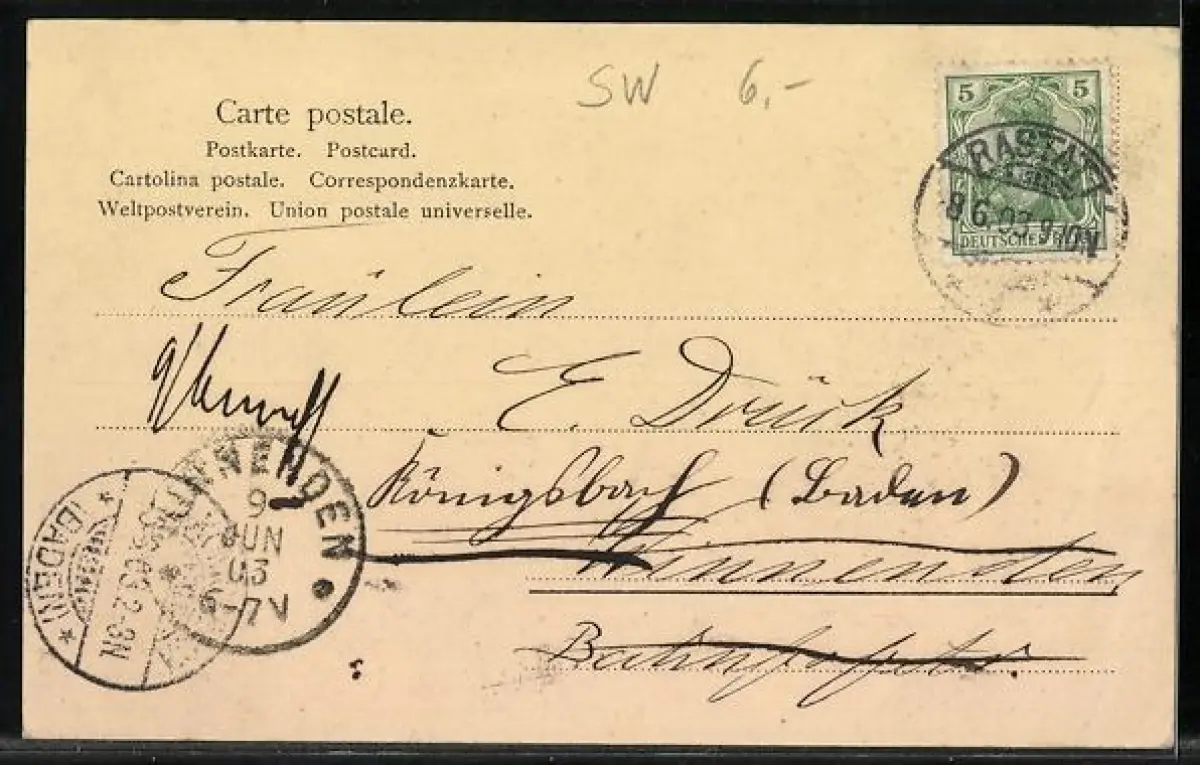 SW 6,-
Carte postale.
Postkarte. Postcard.
Cartolina postale. Correspondenzkarte.
Weltpostverein. Union postale universelle.
5 5
DEUTSCHES
RASTATT
8.6.03.9-10N
Fräulein
E. Drück
Königsbach (Baden)
Winnenden
Bahnhofstr.
WINNENDEN
9
JUN
03
6-7V
(BADEN)
03.2-3N